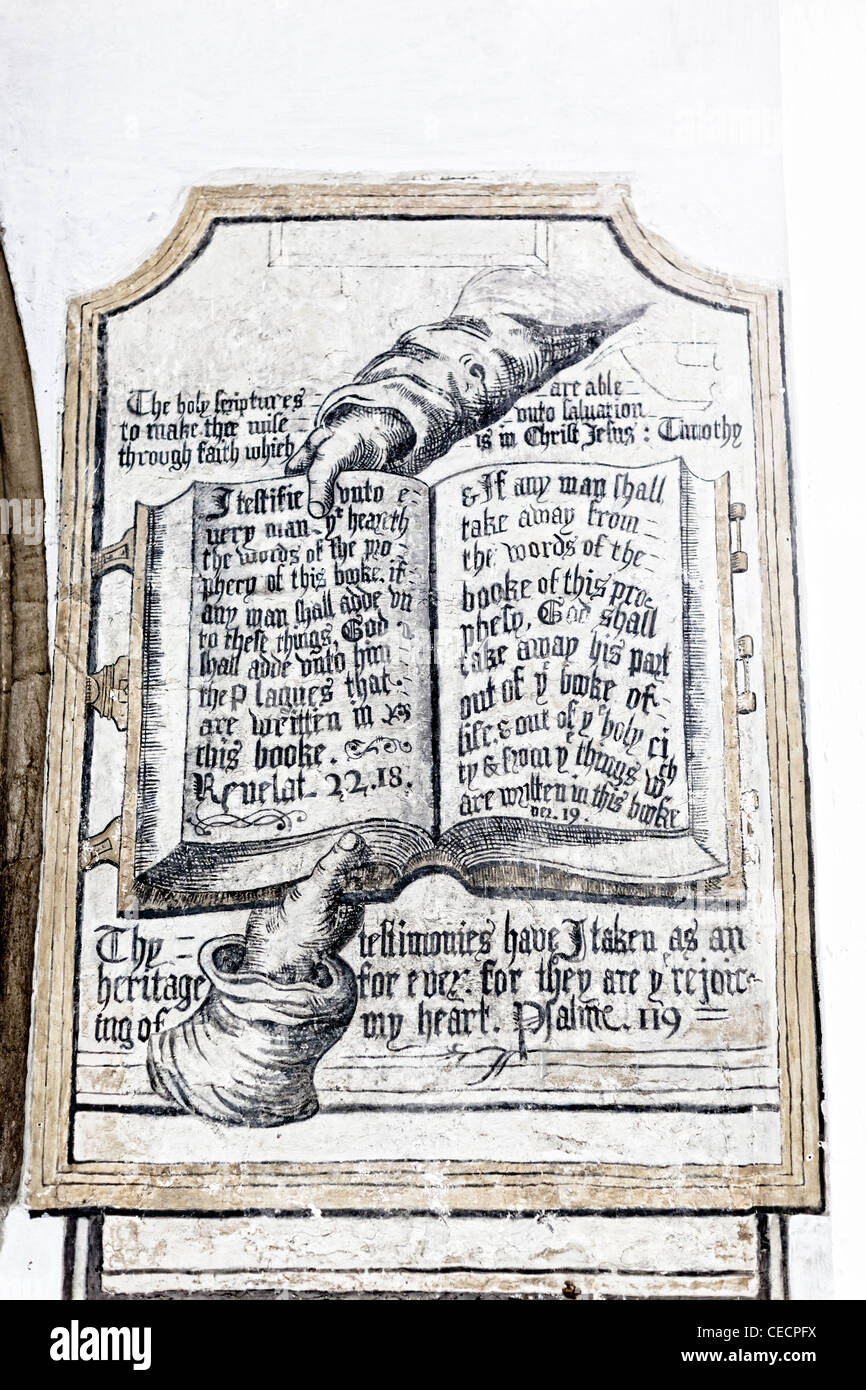 The holy scriptures are able
to make thee wise vnto saluation
through faith which is in Christ Jesus: Timothy
I testifie vnto e-
uery man yt heareth
the words of the pro-
phecy of this booke. if
any man shall adde vn
to these things, God
shall adde vnto him
the Plagues that
are written in
this booke.
Revelat. 22.18.
& If any man shall
take away from
the words of the
booke of this pro-
phesy, God shall
take away his part
out of ye booke of
life, & out of ye holy ci
ty & from ye things wch
are written in this booke
ver. 19.
Thy testimonies have I taken as an
heritage for ever: for they are ye rejoic-
ing of my heart. Psalme. 119
alamy
Image ID: CECPFX
www.alamy.com